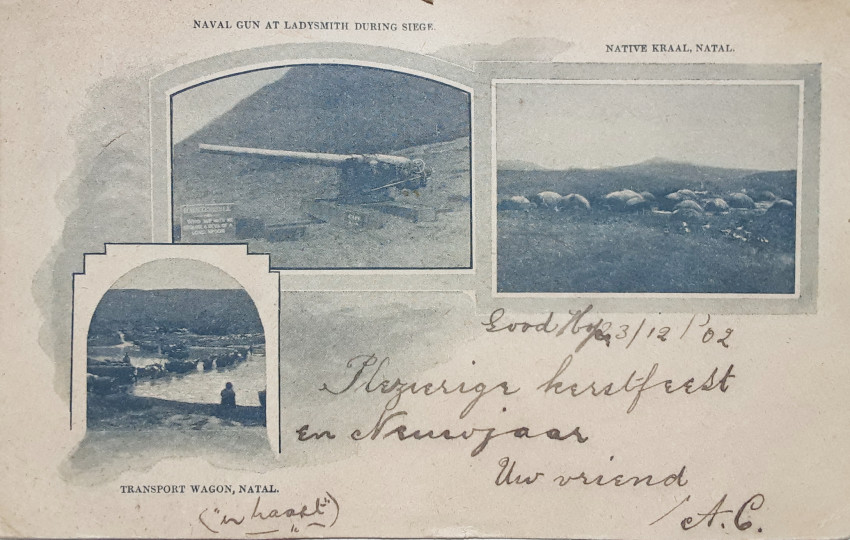 NAVAL GUN AT LADYSMITH DURING SIEGE.
NATIVE KRAAL, NATAL.
Good Hope 23/12/'02
Plezierige kerstfeest
en Nieuwjaar
Uw vriend
A. C.
TRANSPORT WAGON, NATAL.